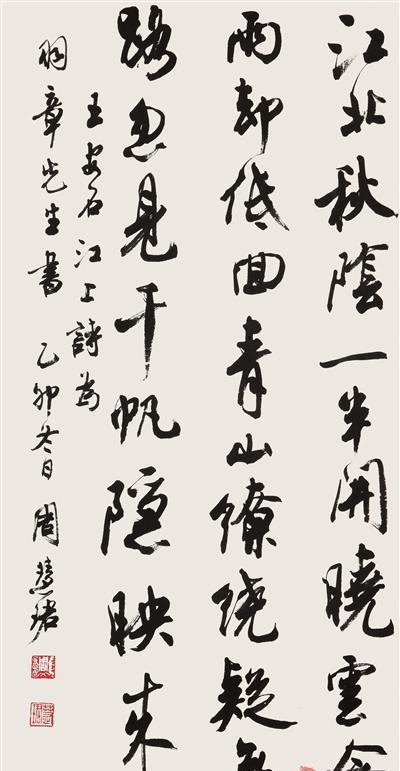 江北秋陰一半開曉雲含
雨却低回青山繚繞疑無
路忽見千帆隱映来
王安石江上詩為
章先生書 乙卯冬日 周慧珺